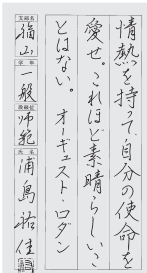 情熱を持って、自分の使命を
愛せ。これほど素晴らしいこ
とはない。
オーギュスト・ロダン
支部名
福山
学年
一般
段級位
師範
氏名
浦島祐佳